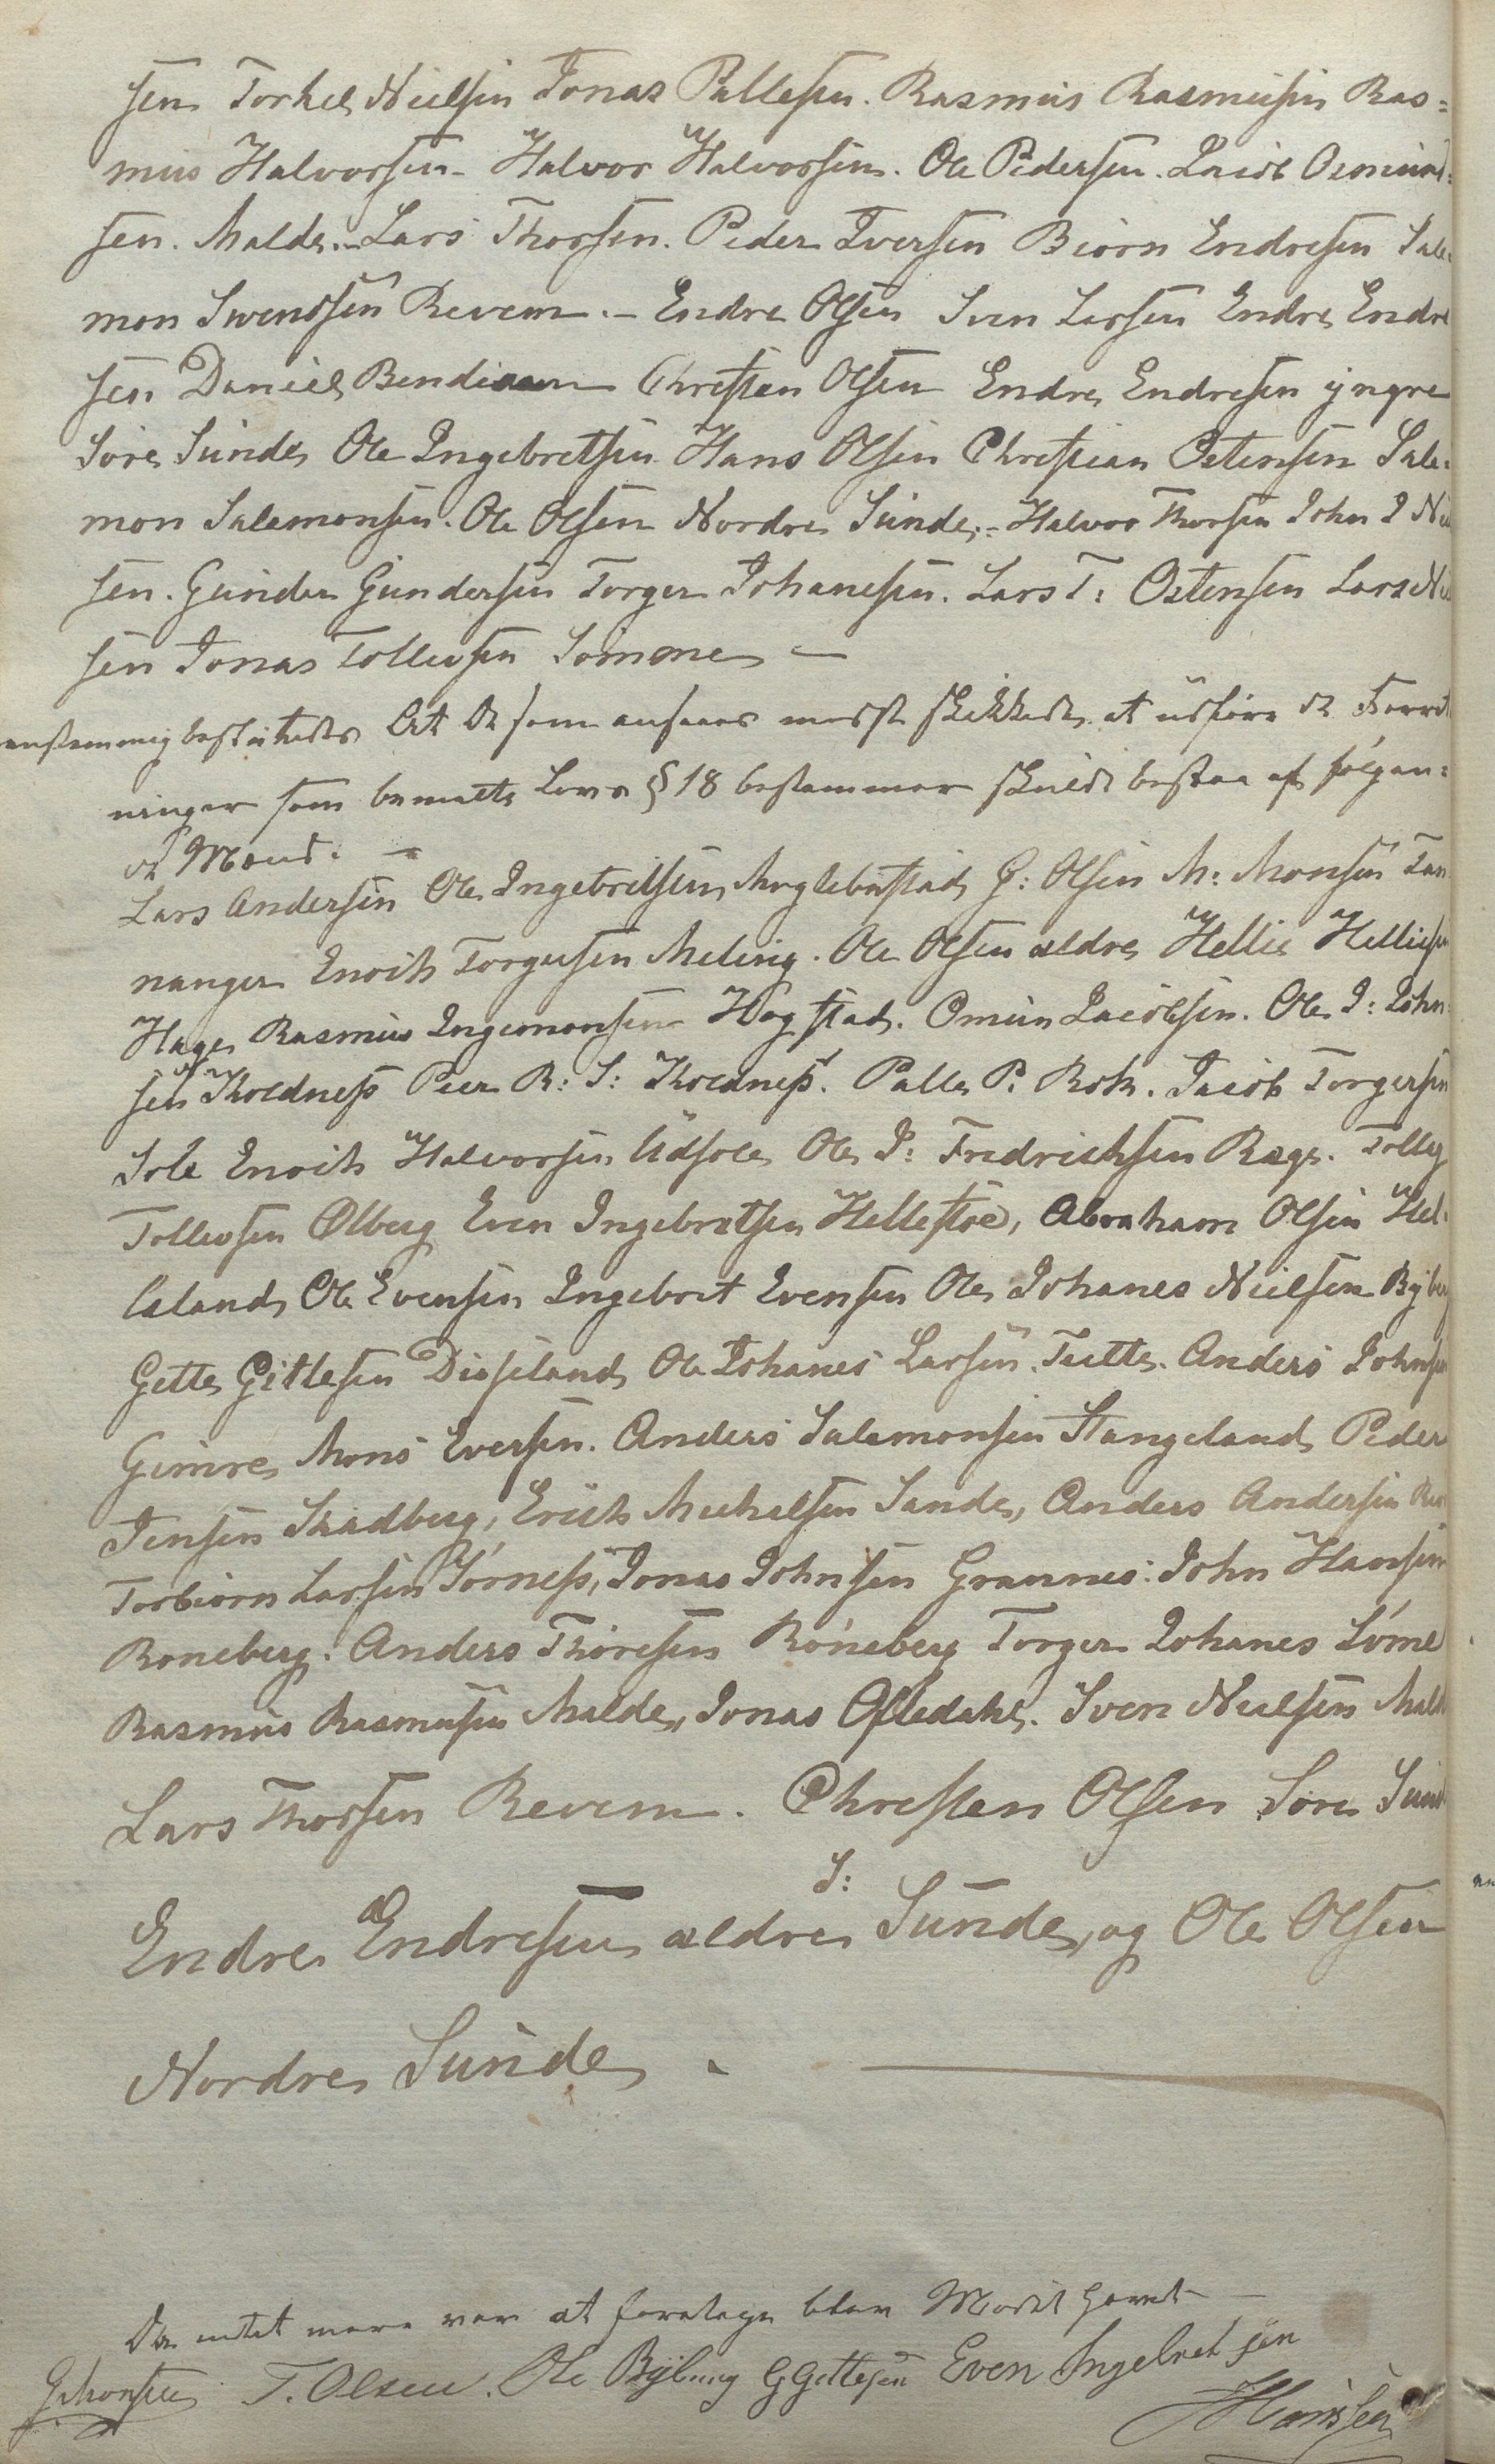 sen Torkel Nielsen Jonas Pallesen. Rasmus Rasmusen Ras=
mus Halvorsen - Halvor Halvorsen. Ole Pedersen. Jacob Osmund=
sen. Malde. - Lars Thorsen. Peder Iversen Biørn Endresen Sale
mon Svendsen Revem. - Endre Olsen Sven Larsen Endre Endre
sen Daniel Chresten Olsen Endre Endresen yngre
Søre Sunde Ole Ingebretsen Hans Olsen Christian Ostensen Sale=
mon Salemonsen. Ole Olsen Nordre Sunde. - Halvor Thorsen John I Nil
sen. Gunder Gundersen Torger Johanesen. Lars T: Ostensen Lars Nil
sen Jonas Tollevsen Sømme -
enstemmig besluttedes At de som ansaaes meest skikkede at udføre de Forret
ninger som bemelte Lovs § 18 bestemmer skulde bestaa af følgen=
de Mænd. -
Lars Andersen Ole Ingebretsen Myglebustad G: Olsen M: Monsen Tan
nanger Enoch Torgersen Meling. Ole Olsen ældre Hellie Helliesen
Hage Rasmus Ingemonsen Høgstad. Omun Jacobsen. Ole I: John
sen Koldness Peer R: S: Kolness. Palle P. Rot. Jacob Torgersen
Sole Enoch Halvorsen Udsole Ole I: Fredrichsen Rege. Tolleg
Tollevsen Ølberg Even Ingebretsen Hellestøe, Abraham Olsen Hel=
leland Ole Evensen Ingebret Evensen Ole Johanes Nielsen Byberg
Gitle Gitlesen Diøseland Ole Johanes Larsen. Tutte. Anders Johnsen
Gimre Mons Eversen. Anders Salemonsen Stangeland Peder
Jensen Skadberg, Erich Michelsen Sande, Anders Andersen
Torbiørn Larsen Sørness, Jonas Johnsen Grannes: John Hansen
Røneberg. Anders Thoresen Røneberg Torger Johanes Sømme
Rasmus Rasmusen Malde, Jonas Osledahl. Sven Nielsen Malde
Lars Thorsen Revem. Chresten Olsen Søre Sunde
Endre Endresen ældre S: Sunde, og Ole Olsen
Nordre Sunde.
Da intet mere var at foretage blev Mødet hævet -
G Monsen T. Olsen. Ole Byberg G Gittlesen Even Ingebretsen
Hansen